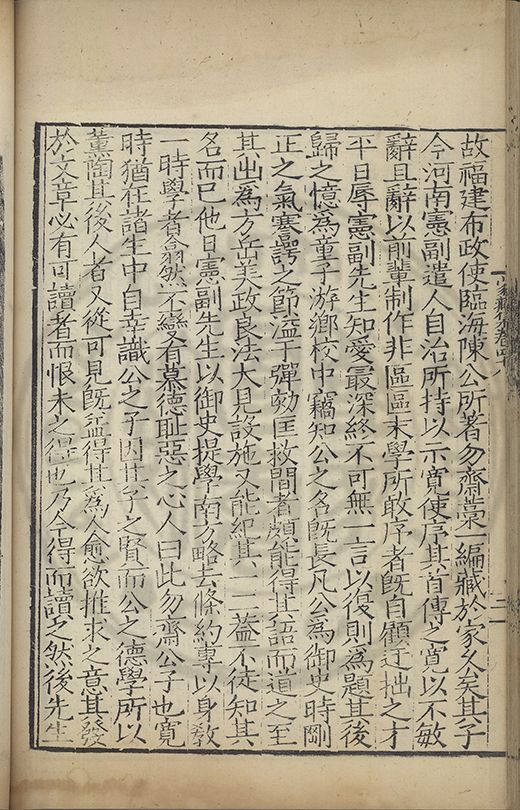 故福建布政使臨海陳公所著勿齋藁一編藏於家久矣其子
今河南憲副遣人自治所持以示寬使序其首傳之寬以不敏
辭且辭以前輩制作非區區末學所敢序者既自顧迂拙之才
平日辱憲副先生知愛最深終不可無一言以復則為題其後
歸之憶為童子游鄉校中竊知公之名既長凡公為御史時剛
正之氣蹇諤之節溢于彈劾匡救間者頗能得其語而道之至
其出為方岳美政良法大見設施又能紀其一二葢不徒知其
名而已他日憲副先生以御史提學南方略去條約專以身教
一時學者翕然不變有慕德耻惡之心人曰此勿齋公子也寬
時猶在諸生中自幸識公之子因其子之賢而公之德學所以
董陶其後人者又從可見既益得其為人愈欲推求之意其發
於文章必有可讀者而恨未之得也乃今得而讀之然後先生
家藏集卷四八
二